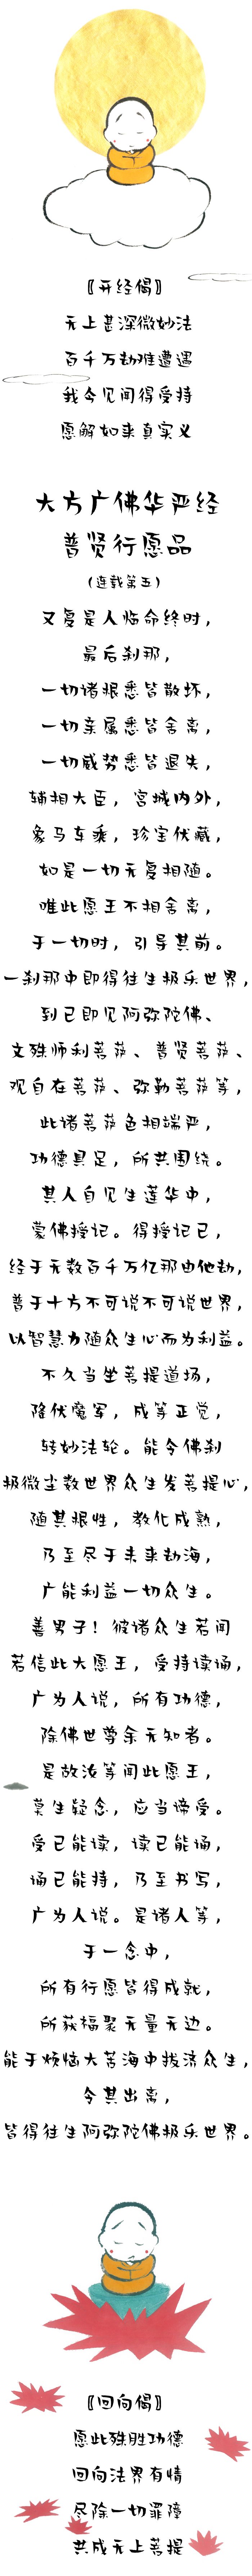 〖开经偈〗
无上甚深微妙法
百千万劫难遭遇
我今见闻得受持
愿解如来真实义
大方广佛华严经
普贤行愿品
(连载第五)
又复是人临命终时，
最后刹那，
一切诸根悉皆散坏，
一切亲属悉皆舍离，
一切威势悉皆退失，
辅相大臣，宫城内外，
象马车乘，珍宝伏藏，
如是一切无复相随。
唯此愿王不相舍离，
于一切时，引导其前。
一刹那中即得往生极乐世界，
到已即见阿弥陀佛、
文殊师利菩萨、普贤菩萨、
观自在菩萨、弥勒菩萨等，
此诸菩萨色相端严，
功德具足，所共围绕。
其人自见生莲华中，
蒙佛授记。得授记已，
经于无数百千万亿那由他劫，
普于十方不可说不可说世界，
以智慧力随众生心而为利益。
不久当坐菩提道场，
降伏魔军，成等正觉，
转妙法轮。能令佛刹
极微尘数世界众生发菩提心，
随其根性，教化成熟，
乃至尽于未来劫海，
广能利益一切众生。
善男子！彼诸众生若闻
若信此大愿王，受持读诵，
广为人说，所有功德，
除佛世尊余无知者。
是故汝等闻此愿王，
莫生疑念，应当谛受。
受已能读，读已能诵，
诵已能持，乃至书写，
广为人说。是诸人等，
于一念中，
所有行愿皆得成就，
所获福聚无量无边。
能于烦恼大苦海中拔济众生，
令其出离，
皆得往生阿弥陀佛极乐世界。
〖回向偈〗
愿此殊胜功德
回向法界有情
尽除一切罪障
共成无上菩提